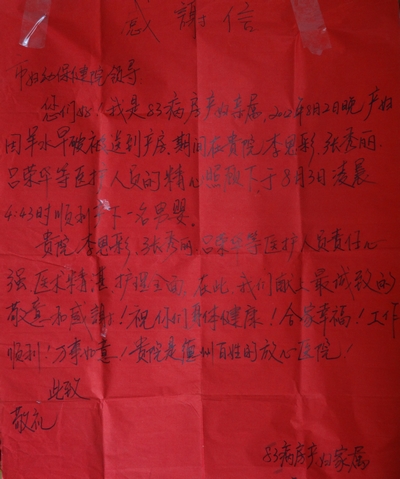 感謝信
市妇幼保健院领导
您们好！我是83病房产妇亲属，2024年8月2日晚产妇
因羊水早破被送到产房，期间在貴院李思彩、张秀丽、
吕荣华等医护人员的精心照顾下于8月3日凌晨
4:43时顺利产下一名男婴。
貴院李思彩、张秀丽、吕荣华等医护人员责任心
强 医术精湛 护理全面，在此，我们献上最诚致的
敬意和感謝！祝你们身体健康！合家幸福！工作
顺利！万事如意！貴院是 百姓的放心医院！
此致
敬礼
83病房产妇家属